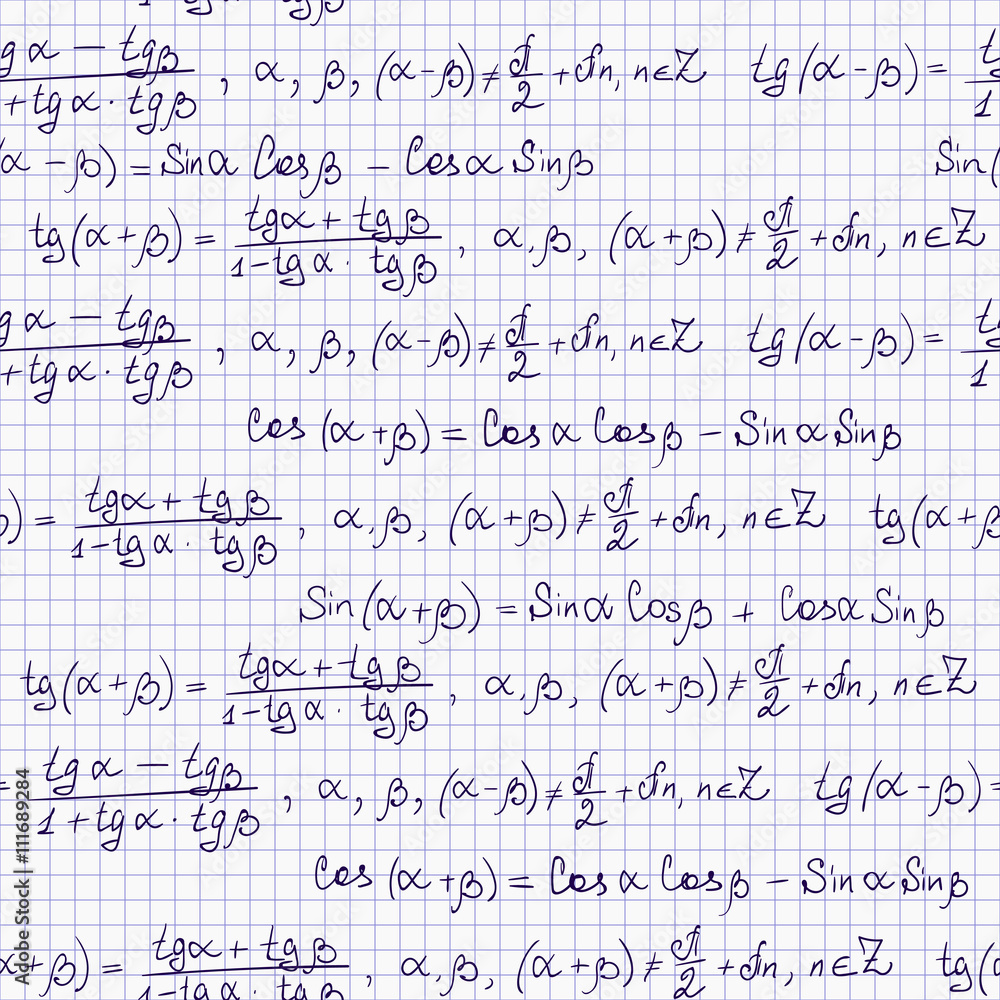 tgα − tgβ / 1 + tgα · tgβ , α, β, (α − β) ≠ π/2 + πn, n ∈ Z tg(α − β) =
(α − β) = Sinα Cosβ − Cosα Sinβ Sin(
tg(α + β) = tgα + tgβ / 1 − tgα · tgβ , α, β, (α + β) ≠ π/2 + πn, n ∈ Z
gα − tgβ / + tgα · tgβ , α, β, (α − β) ≠ π/2 + πn, n ∈ Z tg(α − β) = t / 1
Cos (α + β) = Cosα Cosβ − Sinα Sinβ
) = tgα + tgβ / 1 − tgα · tgβ , α, β, (α + β) ≠ π/2 + πn, n ∈ Z tg(α + β
Sin(α + β) = Sinα Cosβ + Cosα Sinβ
tg(α + β) = tgα + tgβ / 1 − tgα · tgβ , α, β, (α + β) ≠ π/2 + πn, n ∈ Z
= tgα − tgβ / 1 + tgα · tgβ , α, β, (α − β) ≠ π/2 + πn, n ∈ Z tg(α − β) =
Cos (α + β) = Cosα Cosβ − Sinα Sinβ
α + β) = tgα + tgβ / 1 − tgα · tgβ , α, β, (α + β) ≠ π/2 + πn, n ∈ Z tg(
Adobe Stock | #111689284